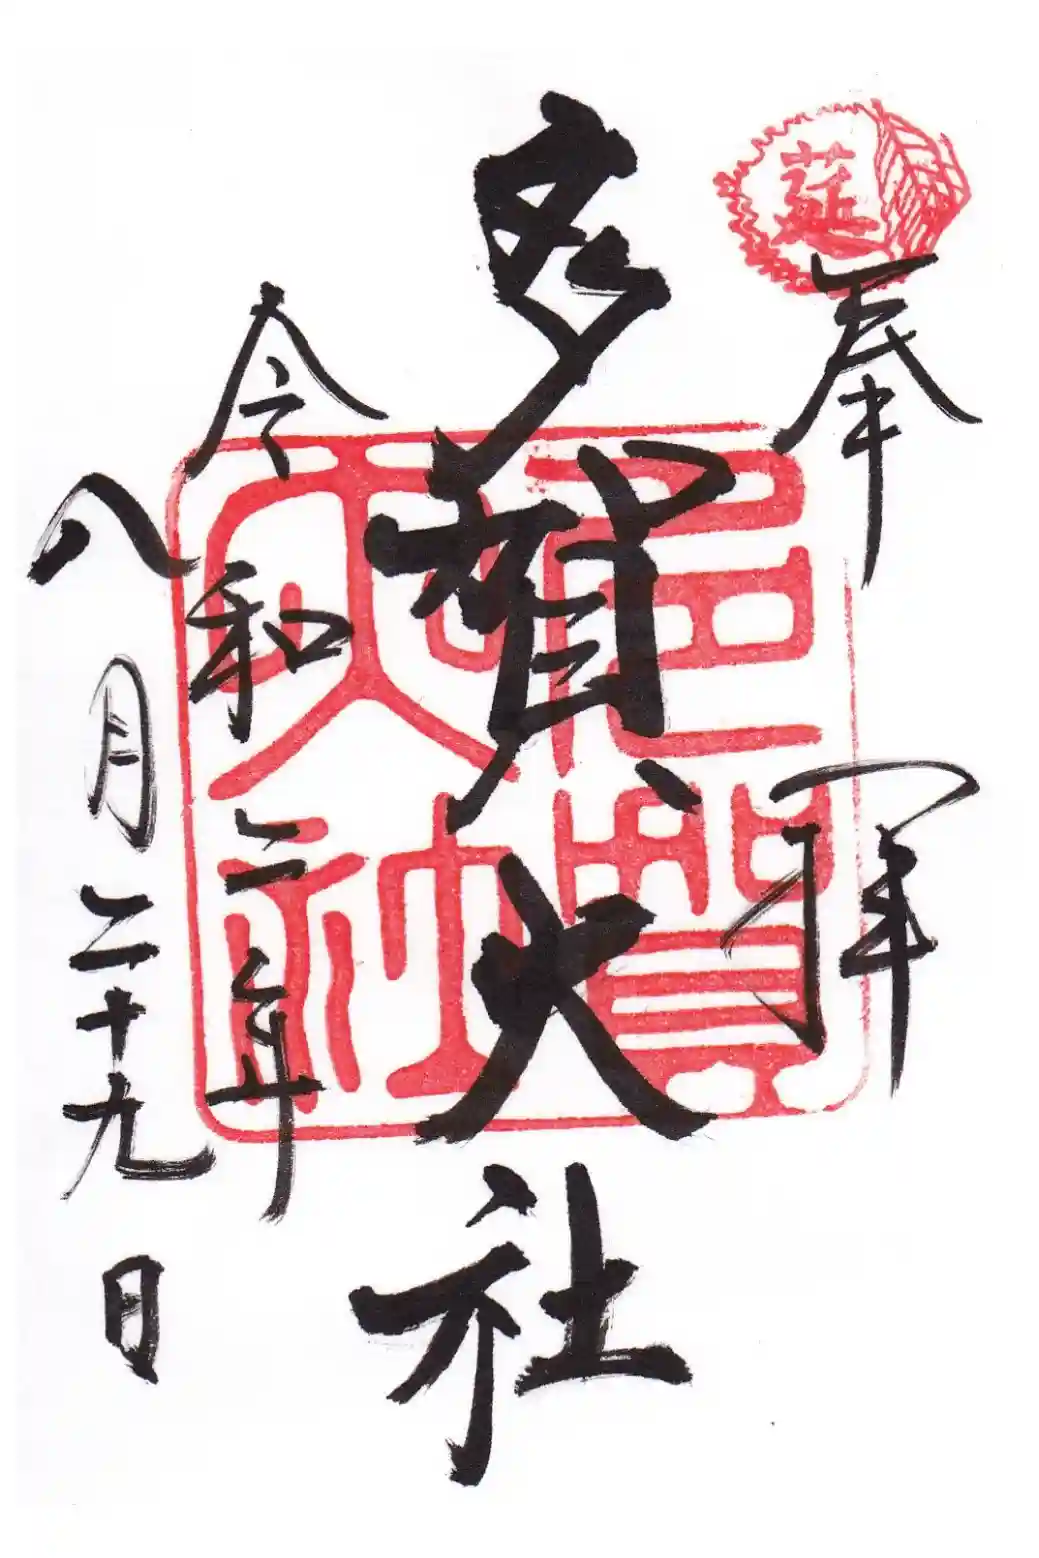 奉拝
莚
多賀大社
多賀大社
令和二年
八月二十九日